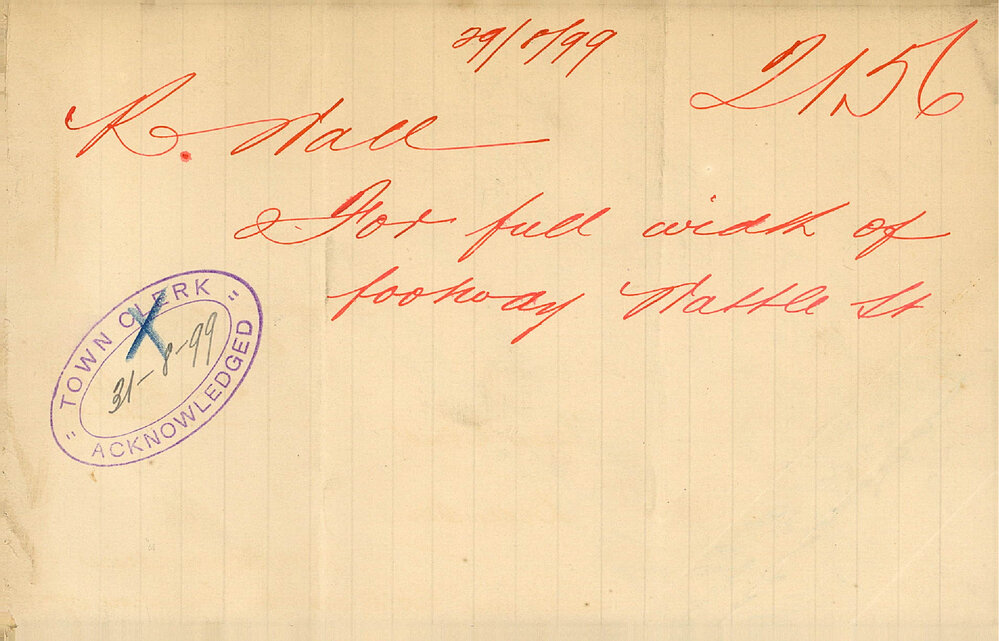 29/8/99
2156
R. Wall
For full width of
footway Wattle St
TOWN CLERK
31-8-99
ACKNOWLEDGED